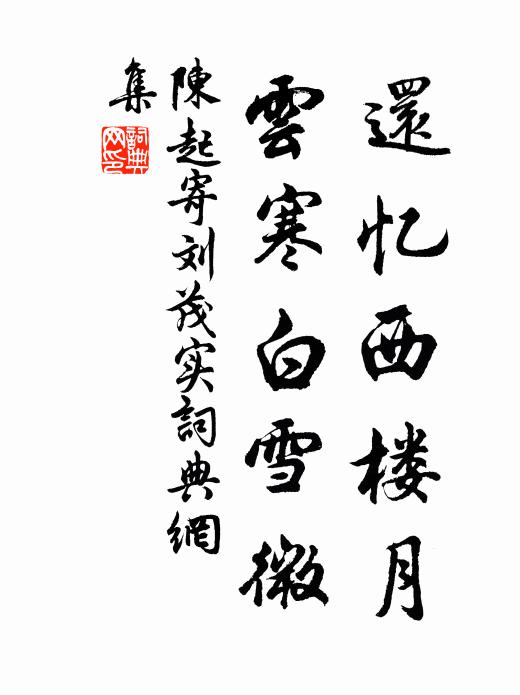 還忆西楼月
雲寒白雪微
陳起寄刘茂实詞典網
集
詞典网印